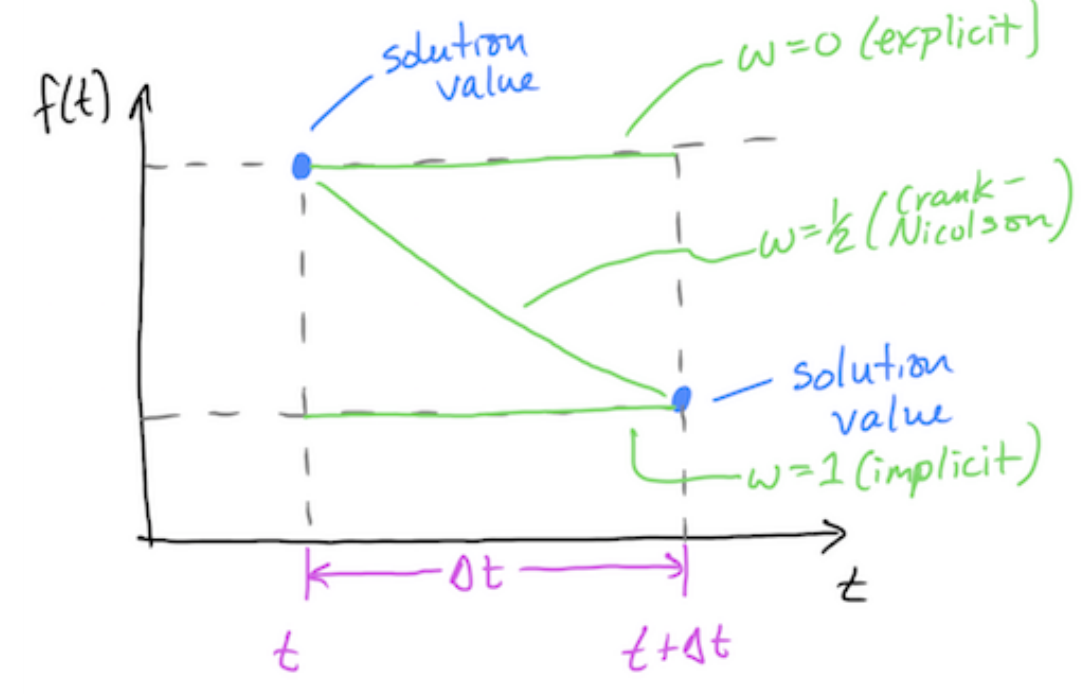 solution
value
ω=0 (explicit)
f(t)
ω=½ (Crank-
Nicolson)
solution
value
ω=1 (implicit)
Δt
t
t
t+Δt